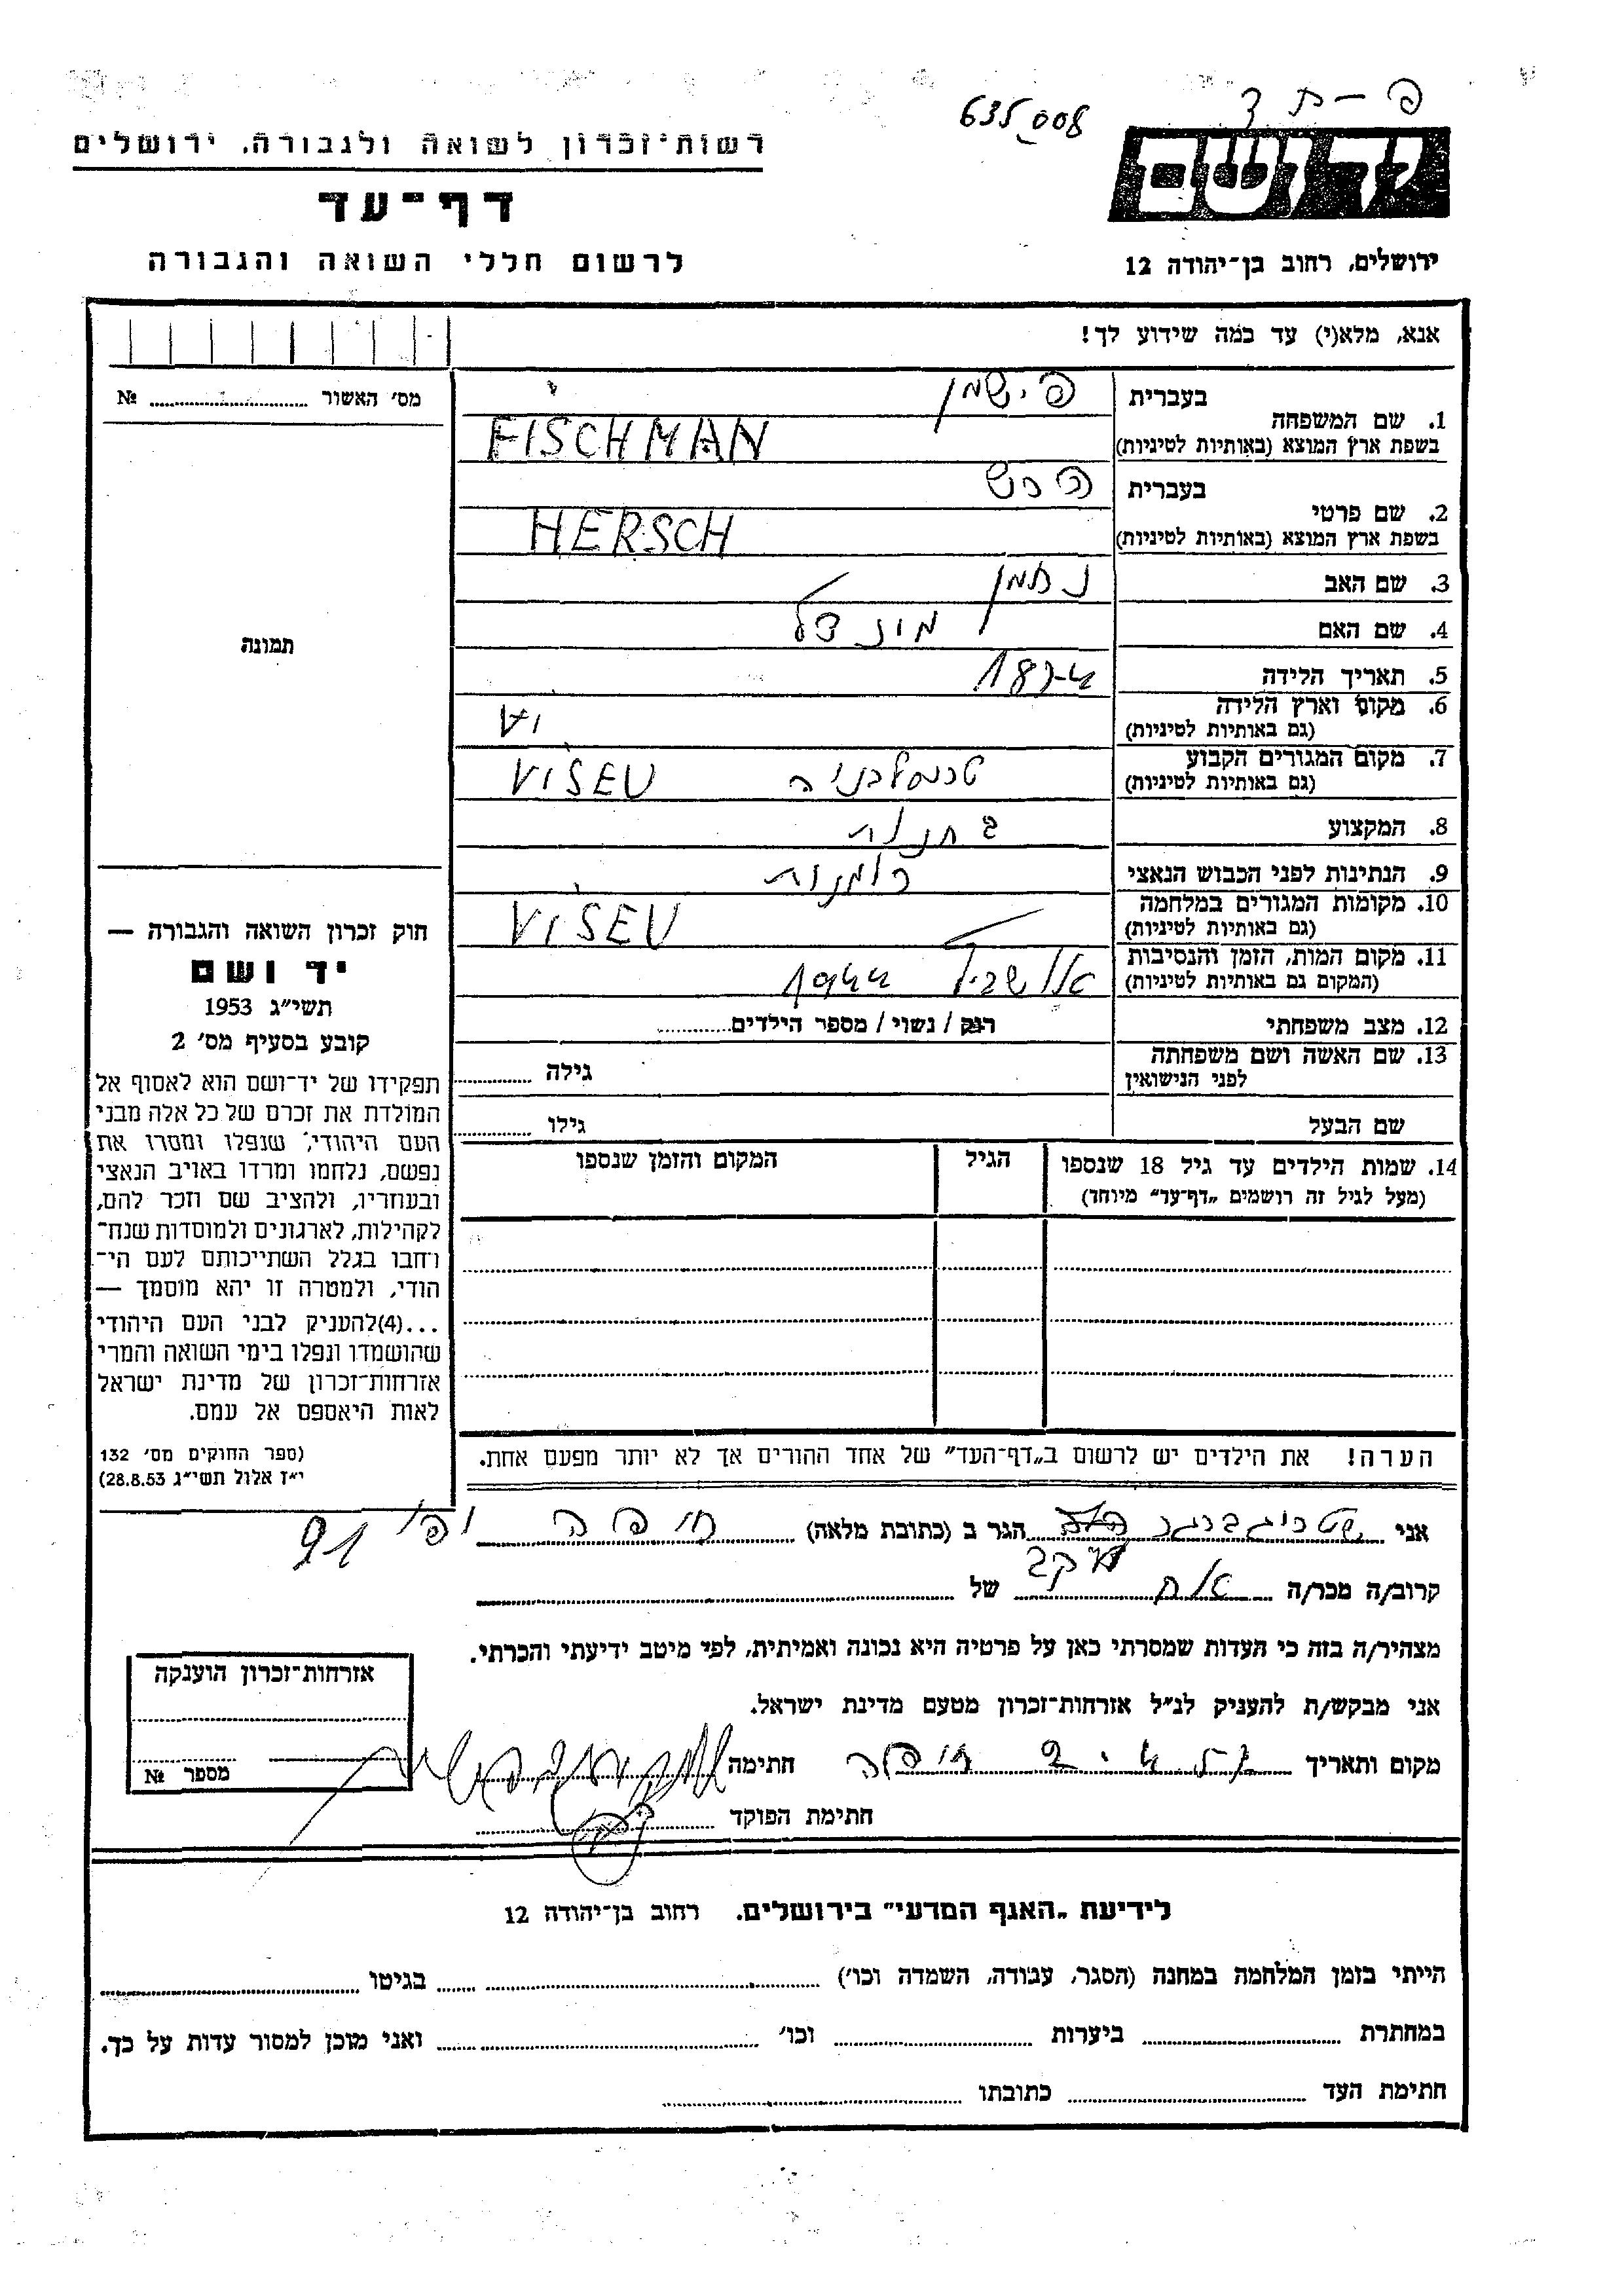 635008
יד ושם
ירושלים, רחוב בן־יהודה 12
רשות־זכרון לשואה ולגבורה, ירושלים
דף־עד
לרשום חללי השואה והגבורה
אנא, מלא(י) עד כמה שידוע לך!
מס׳ האשור № 
תמונה
1. שם המשפחה
בעברית פישמן
בשפת ארץ המוצא (באותיות לטיניות) FISCHMAN
2. שם פרטי
בעברית הרש
בשפת ארץ המוצא (באותיות לטיניות) HERSCH
3. שם האב נחמן
4. שם האם
5. תאריך הלידה
6. מקום וארץ הלידה
(גם באותיות לטיניות)
7. מקום המגורים הקבוע
(גם באותיות לטיניות) טרנסלבניה VISEU
8. המקצוע
9. הנתינות לפני הכבוש הנאצי רומנות
10. מקומות המגורים במלחמה
(גם באותיות לטיניות) VISEU
11. מקום המות, הזמן והנסיבות
(המקום גם באותיות לטיניות) אושביץ
12. מצב משפחתי רוק / נשוי / מספר הילדים
13. שם האשה ושם משפחתה
לפני הנישואין גילה
שם הבעל גילו
14. שמות הילדים עד גיל 18 שנספו
(מעל לגיל זה רושמים „דף־עד״ מיוחד)
הגיל
המקום והזמן שנספו
חוק זכרון השואה והגבורה —
יד ושם
תשי״ג 1953
קובע בסעיף מס׳ 2
תפקידו של יד־ושם הוא לאסוף אל
המולדת את זכרם של כל אלה מבני
העם היהודי, שנפלו ומסרו את
נפשם, נלחמו ומרדו באויב הנאצי
ובעוזריו, ולהציב שם וזכר להם,
לקהילות, לארגונים ולמוסדות שנח־
רבו בגלל השתייכותם לעם הי־
הודי, ולמטרה זו יהא מוסמך —
...(4)להעניק לבני העם היהודי
שהושמדו ונפלו בימי השואה והמרי
אזרחות־זכרון של מדינת ישראל
לאות היאספם אל עמם.
(ספר החוקים מס׳ 132
י״ז אלול תשי״ג 28.8.53)
הערה! את הילדים יש לרשום ב„דף־העד״ של אחד ההורים אך לא יותר מפעם אחת.
אני הגר ב (כתובת מלאה) חיפה 91
קרוב/ה מכר/ה של
מצהיר/ה בזה כי העדות שמסרתי כאן על פרטיה היא נכונה ואמיתית, לפי מיטב ידיעתי והכרתי.
אני מבקש/ת להעניק לנ״ל אזרחות־זכרון מטעם מדינת ישראל.
מקום ותאריך חיפה חתימה
חתימת הפוקד
אזרחות־זכרון הוענקה
מספר №
לידיעת „האגף המדעי״ בירושלים. רחוב בן־יהודה 12
הייתי בזמן המלחמה במחנה (הסגר, עבודה, השמדה וכו׳) בגיטו
במחתרת ביערות וכו׳ ואני מוכן למסור עדות על כך.
חתימת העד כתובתו